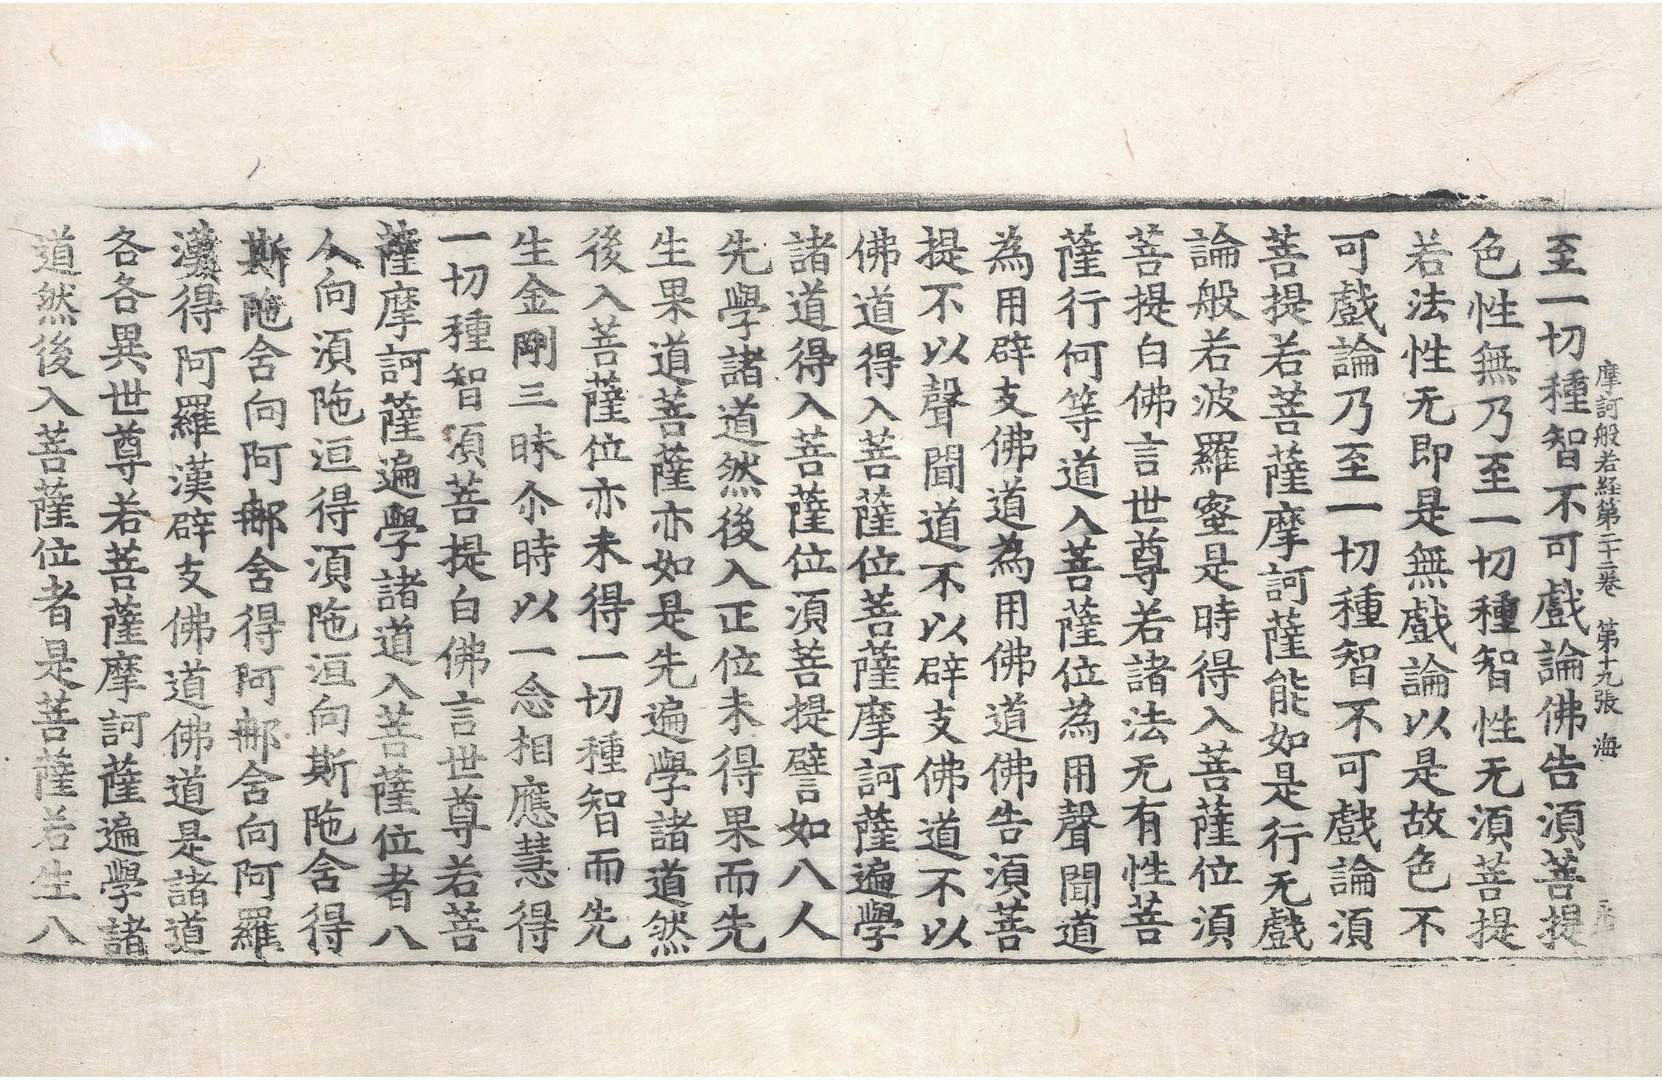 摩訶般若経第二十二卷 第十九張 海
至一切種智不可戲論佛告湏菩提
色性無乃至一切種智性无湏菩提
若法性无即是無戲論以是故色不
可戲論乃至一切種智不可戲論湏
菩提若菩薩摩訶薩能如是行无戲
論般若波羅蜜是時得入菩薩位湏
菩提白佛言世尊若諸法无有性菩
薩行何等道入菩薩位為用聲聞道
為用辟支佛道為用佛道佛告湏菩
提不以聲聞道不以辟支佛道不以
佛道得入菩薩位菩薩摩訶薩遍學
諸道得入菩薩位湏菩提譬如八人
先學諸道然後入正位未得果而先
生果道菩薩亦如是先遍學諸道然
後入菩薩位亦未得一切種智而先
生金剛三昧尒時以一念相應慧得
一切種智湏菩提白佛言世尊若菩
薩摩訶薩遍學諸道入菩薩位者八
人向湏陁洹得湏陁洹向斯陁舍得
斯陁舍向阿那舍得阿那舍向阿羅
漢得阿羅漢辟支佛道佛道是諸道
各各異世尊若菩薩摩訶薩遍學諸
道然後入菩薩位者是菩薩若生八